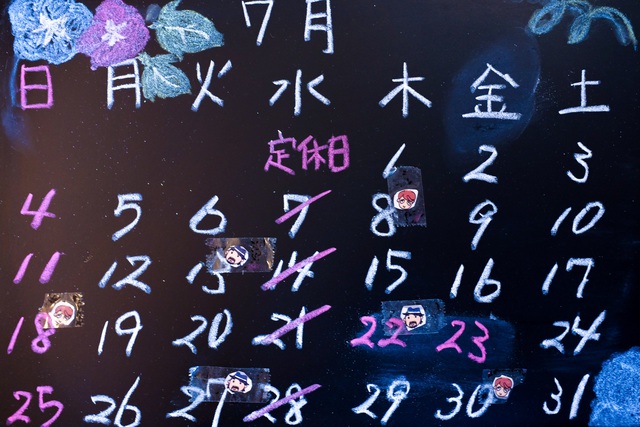 7月
日 月 火 水 木 金 土
定休日
1 2 3
4 5 6 7 8 9 10
11 12 13 14 15 16 17
18 19 20 21 22 23 24
25 26 27 28 29 30 31